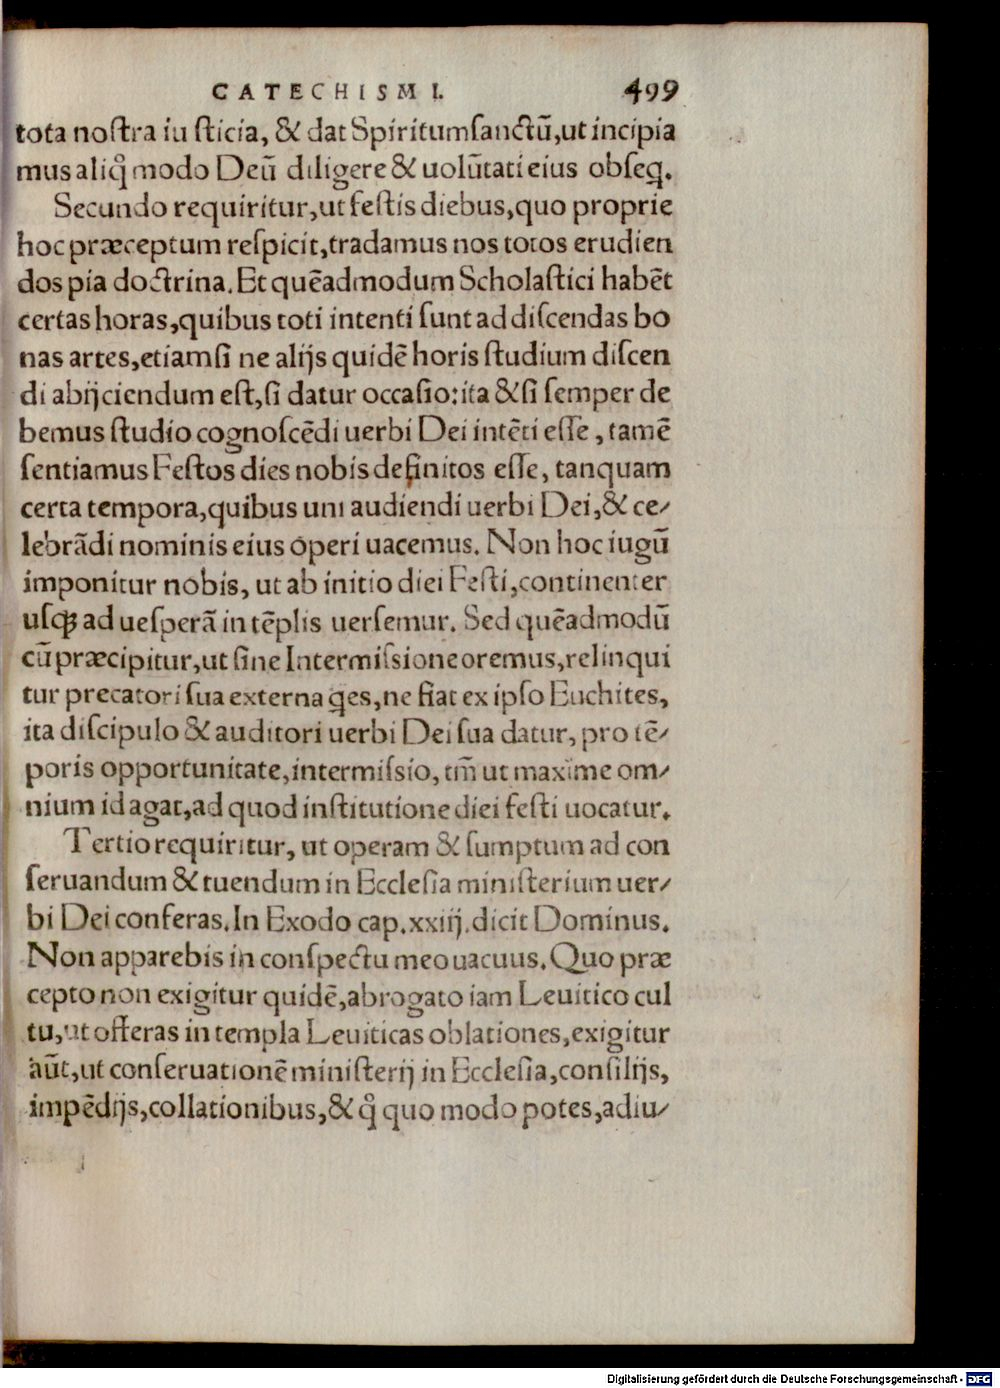 CATECHISMI. 499
tota noſtra iu ſticia, & dat Spiritumſanctū,ut incipia
mus aliq̊ modo Deū diligere & uolūtati eius obſeq.
Secundo requiritur,ut feſtis diebus,quo proprie
hoc præceptum reſpicit,tradamus nos totos erudien
dos pia doctrina.Et quēadmodum Scholaſtici habēt
certas horas,quibus toti intenti ſunt ad diſcendas bo
nas artes,etiamſi ne alijs quidē horis ſtudium diſcen
di abijciendum eſt,ſi datur occaſio:ita &ſi ſemper de
bemus ſtudio cognoſcēdi uerbi Dei intēti eſſe , tamē
ſentiamus Feſtos dies nobis definitos eſſe, tanquam
certa tempora,quibus uni audiendi uerbi Dei,& ce⸗
lebrādi nominis eius operi uacemus. Non hoc iugū
imponitur nobis, ut ab initio diei Feſti,continenter
uſqꝫ ad ueſperā in tēplis uerſemur. Sed quēadmodū
cū præcipitur,ut ſine Intermiſsione oremus,relinqui
tur precatori ſua externa q̄es,ne fiat ex ipſo Euchites,
ita diſcipulo & auditori uerbi Dei ſua datur, pro tē⸗
poris opportunitate,intermiſsio, tm̄ ut maxime om⸗
nium id agat,ad quod inſtitutione diei feſti uocatur.
Tertio requiritur, ut operam & ſumptum ad con
ſeruandum & tuendum in Eccleſia miniſterium uer⸗
bi Dei conferas.In Exodo cap.xxiij.dicit Dominus.
Non apparebis in conſpectu meo uacuus.Quo præ
cepto non exigitur quidē,abrogato iam Leuitico cul
tu,ut offeras in templa Leuiticas oblationes,exigitur
aūt,ut conſeruationē miniſterij in Eccleſia,conſilijs,
impēdijs,collationibus,& q̊ quo modo potes,adiu⸗
Digitalisierung gefördert durch die Deutsche Forschungsgemeinschaft - DFG